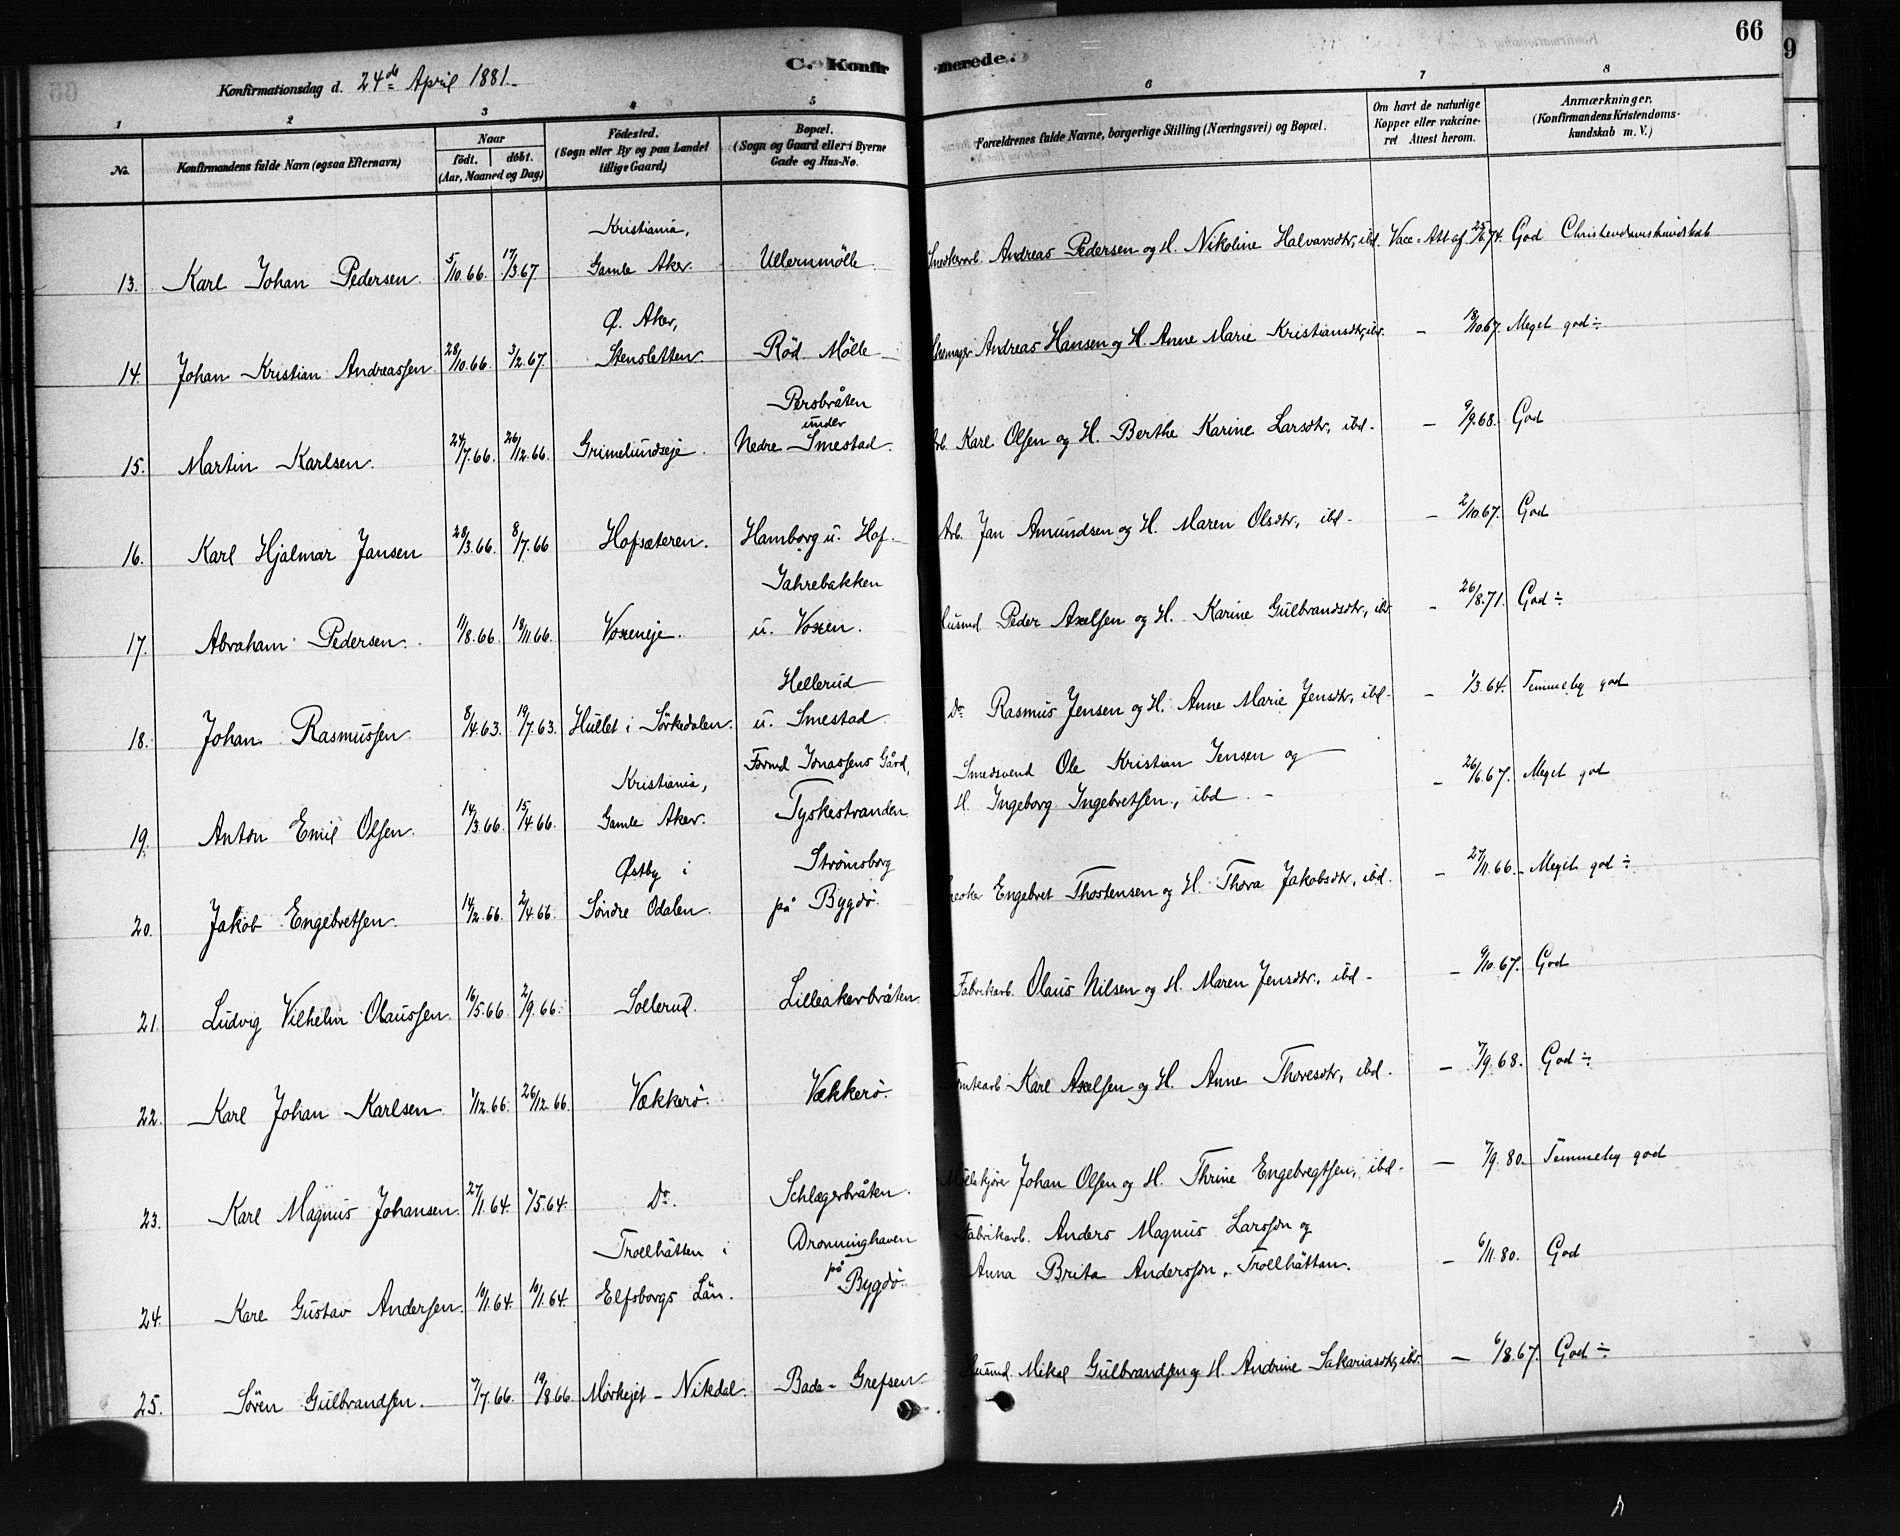 66
C. Konfirmerede.
Konfirmationsdag d. 24de April 1881.
1 2 3 4 5 6 7 8
No.
Konfirmandens fulde Navn (ogsaa Efternavn)
Naar
født. døbt.
(Aar, Maaned og Dag)
Fødested.
(Sogn eller By og paa Landet
tillige Gaard)
Bopæl.
(Sogn og Gaard eller i Byerne
Gade og Hus-No.
Forældrenes fulde Navne, borgerlige Stilling (Næringsvei) og Bopæl.
Om havt de naturlige
Kopper eller vakcine-
ret Attest herom.
Anmærkninger.
(Konfirmandens Kristendoms-
kundskab m. V.)
Kristiania,
13. Karl Johan Pedersen. 5/10.66. 17/3.67. Gamle Aker. Ullernmölle. Andreas Pedersen og H. Nikoline Halvorsdtr, ibd. Vacc. Att af 25/6.74. God Christendomskundskab
Ø. Aker,
14. Johan Kristian Andreassen 28/10.66. 3/2.67. Stensletten. Röd Mölle Andreas Hansen og H. Anne Marie Kristiansdtr, ibd. – 18/10.67. Meget god ÷
Persbråten
under
15. Martin Karlsen. 24/7.66. 26/12.66. Grimelundseje. Nedre Smestad. Arb. Karl Olsen og H. Berthe Karine Larsdtr, ibd. – 9/9.68. God
16. Karl Hjalmar Jansen 28/3.66. 8/7.66 Hofsæteren. Hamborg u. Hof. Arb. Jan Amundsen og H. Maren Olsdtr, ibd. – 2/10.67. God
Jahrebakken
17. Abraham Pedersen. 11/8.66. 18/11.66. Voxeneje. u. Voxen. Husmd Peder Axelsen og H. Karine Gulbrandsdtr, ibd. – 26/8.71. God ÷
Hellerud
18. Johan Rasmussen. 8/4.63. 19/7.63. Hullet i Sörkedalen. u. Smestad. Do Rasmus Jensen og H. Anne Marie Jensdtr, ibd. – 1/3.64. Temmelig god
Kristiania, Formd Jonassens Gård, Smedsvend Ole Kristian Jensen og
19. Anton Emil Olsen. 14/3.66. 15/4.66. Gamle Aker. Tyskestranden H. Ingeborg Ingebretsen, ibd. – 26/6.67. Meget god
Østby i Strömsborg
20. Jakob Engebretsen. 14/2.66. 2/4.66. Söndre Odalen. på Bygdö. Engebret Thostensen og H. Thora Jakobsdtr, ibd. – 27/11.66. Meget god ÷
21. Ludvig Vilhelm Olaussen. 16/5.66. 2/9.66. Sollerud. Lilleakerbråten. Fabrikarb. Olaus Nilsen og H. Maren Jensdtr, ibd. – 9/10.67. God
22. Karl Johan Karlsen 1/12.66. 26/12.66. Vækkerö. Vækkerö. Karl Axelsen og H. Anne Thoresdtr, ibd. – 7/9.68. God ÷
23. Karl Magnus Johansen 27/1.64. 1/5.64. Do. Schlagerbråten. Möllekjörer Johan Olsen og H. Thrine Engebregtsen, ibd. – 7/9.80. Temmelig god
Trollhätten i Dronninghaven Fabrikarb. Anders Magnus Larsson og
på
24. Karl Gustav Andersen. 10/1.64. 10/1.64. Elfsborgs Län. Bygdö. Anna Brita Andersson, Trollhättan. – 6/11.80. God
25. Sören Gulbrandsen. 7/7.66. 19/8.66 Mörkejet – Nitedal. Bade-Grefsen. Husmd. Mikal Gulbrandsen og H. Andrine Sakariasdtr, ibd. – 6/8.67. God ÷